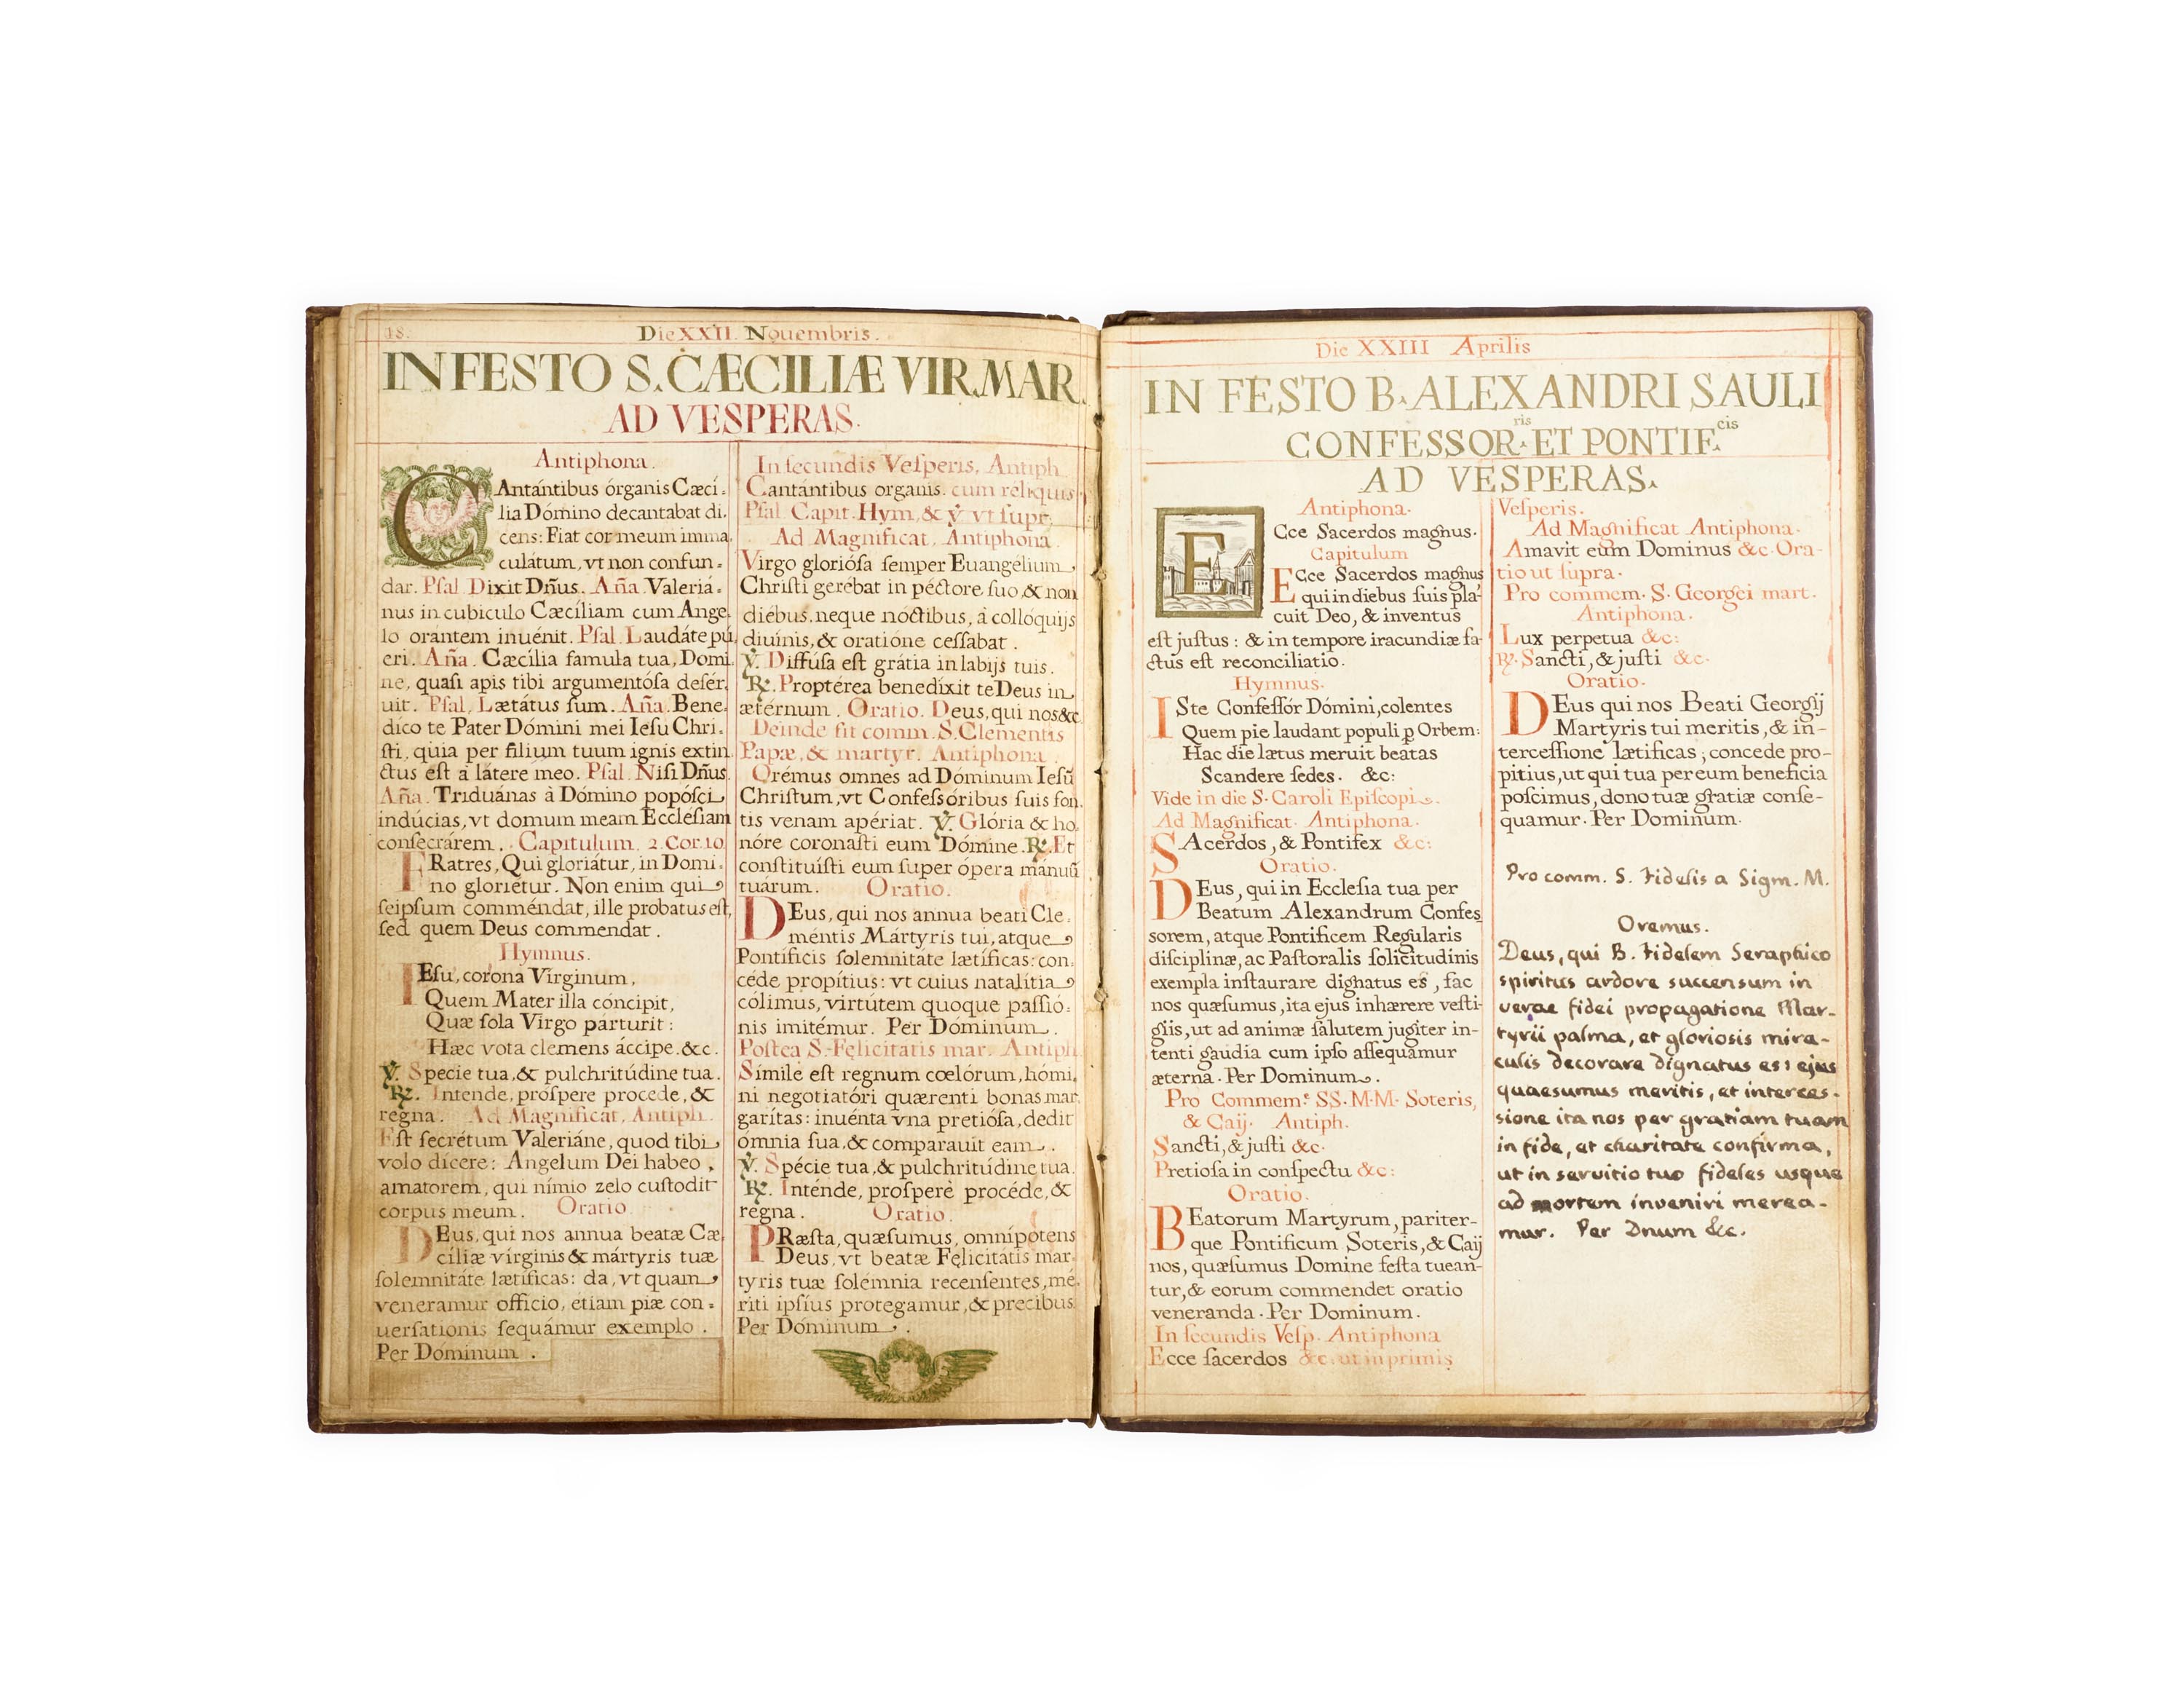 18.
Die XXII. Nouembris.
IN FESTO S. CÆCILIÆ VIR.MAR.
AD VESPERAS.
Antiphona.
CAntántibus órganis Cæcí-
lia Dómino decantabat di-
cens: Fiat cor meum imma-
culátum, vt non confun-
dar. Pſal. Dixit Dñus. Aña. Valeriá-
nus in cubiculo Cæcíliam cum Ange-
lo orántem inuénit. Pſal. Laudáte pú-
eri. Aña. Cæcília famula tua, Domi-
ne, quaſi apis tibi argumentóſa deſér-
uit. Pſal. Lætátus ſum. Aña. Bene-
díco te Pater Dómini mei Ieſu Chri-
ſti, quia per filium tuum ignis extin-
ctus eſt a látere meo. Pſal. Niſi Dñus
Aña. Triduánas à Dómino popóſci
indúcias, vt domum meam Eccleſiam
conſecrárem. Capitulum. 2. Cor. 10
FRatres, Qui gloriátur, in Domi-
no gloriétur. Non enim qui
ſeipſum comméndat, ille probatus eſt,
ſed quem Deus commendat.
Hymnus.
IEſu, corona Vírginum,
Quem Mater illa cóncipit,
Quæ ſola Virgo párturit:
Hæc vota clemens áccipe. &c.
℣. Specie tua, & pulchritúdine tua.
℟. Intende, proſpere procede, &
regna. Ad Magnificat, Antiph.
Eſt ſecrétum Valeriáne, quod tibi
volo dícere: Angelum Dei habeo
amatorem, qui nímio zelo cuſtodit
corpus meum. Oratio
DEus, qui nos annua beatæ Cæ-
cíliæ vírginis & mártyris tuæ
ſolemnitáte lætíficas: da, vt quam
veneramur officio, etiam piæ con-
uerſationis ſequámur exemplo.
Per Dóminum.
In ſecundis Veſperis, Antiph.
Cantántibus organis. cum réliquis
Pſal. Capit. Hym, & ℣ vt ſupr.
Ad Magnificat, Antiphona
Virgo glorióſa ſemper Euangélium
Chriſti gerébat in péctore ſuo, & non
diébus, neque nóctibus, à collóquijs
diuínis, & oratióne ceſſabat.
℣. Diffúſa eſt grátia in labijs tuis.
℟. Proptérea benedíxit te Deus in
ætérnum. Oratio. Deus, qui nos &c
Deinde fit comm. S. Clementis
Papæ, & martyr. Antiphona.
Orémus omnes ad Dóminum Ieſū
Chriſtum, vt Confeſsóribus ſuis fon-
tis venam apériat. ℣. Glória & ho-
nóre coronaſti eum Dómine. ℟. Et
conſtituíſti eum ſuper ópera manuū
tuárum. Oratio.
DEus, qui nos annua beati Cle-
méntis Mártyris tui, atque
Pontíficis ſolemnitáte lætíficas: con-
céde propítius: vt cuius natalítia
cólimus, virtútem quoque paſſió-
nis imitémur. Per Dóminum.
Poſtea S. Felicitátis mar. Antiph.
Símile eſt regnum cœlórum, hómi-
ni negotiatóri quærenti bonas mar-
garítas: inuénta vna pretióſa, dedit
omnia ſua, & comparauit eam.
℣. Spécie tua, & pulchritúdine tua.
℟. Inténde, proſperè procéde, &
regna. Oratio.
PRæſta, quæſumus, omnípotens
Deus, vt beatæ Felicitátis mar-
tyris tuæ ſolémnia recenſentes, mé-
riti ipſíus protegamur, & precibus.
Per Dóminum.
Die XXIII Aprilis
IN FESTO B. ALEXANDRI SAULI
CONFESSOR.ris ET PONTIF.cis
AD VESPERAS.
Antiphona.
ECce Sacerdos magnus.
Capitulum
ECce Sacerdos magnus
qui in diebus ſuis pla-
cuit Deo, & inventus
eſt juſtus: & in tempore iracundiæ fa-
ctus eſt reconciliatio.
Hymnus.
ISte Confeſſór Dómini, colentes
Quem pie laudant populi ꝑ Orbem:
Hac die lætus meruit beatas
Scandere ſedes. &c:
Vide in die S. Caroli Epiſcopi.
Ad Magnificat. Antiphona.
SAcerdos, & Pontifex &c:
Oratio.
DEus, qui in Eccleſia tua per
Beatum Alexandrum Confes
sorem, atque Pontificem Regularis
diſciplinæ, ac Paſtoralis ſolicitudinis
exempla inſtaurare dignatus es, fac
nos quæſumus, ita ejus inhærere veſti-
giis, ut ad animæ ſalutem jugiter in-
tenti gaudia cum ipſo aſſequamur
æterna. Per Dominum.
Pro Commem.e SS. M.M. Soteris,
& Caij. Antiph.
Sancti, & juſti &c.
Pretioſa in conſpectu &c:
Oratio.
BEatorum Martyrum, pariter-
que Pontificum Soteris, & Caij
nos, quæſumus Domine feſta tuean-
tur, & eorum commendet oratio
veneranda. Per Dominum.
In ſecundis Veſp. Antiphona
Ecce ſacerdos &c. ut in primis
Veſperis.
Ad Magnificat Antiphona.
Amavit eum Dominus &c. Ora-
tio ut ſupra.
Pro commem. S. Georgei mart.
Antiphona.
Lux perpetua &c:
℟. Sancti, & juſti &c.
Oratio.
DEus qui nos Beati Georgij
Martyris tui meritis, & in-
terceſſione lætificas; concede pro-
pitius, ut qui tua per eum beneficia
poſcimus, dono tuæ gratiæ conſe-
quamur. Per Dominum.
Pro comm. S. Fidelis a Sigm. M.
Oremus.
Deus, qui B. Fidelem Seraphico
spiritus ardore succensum in
verae fidei propagatione Mar-
tyrii palma, et gloriosis mira-
culis decorare dignatus es: ejus
quaesumus meritis, et interces-
sione ita nos per gratiam tuam
in fide, et charitate confirma,
ut in servitio tuo fideles usque
ad mortem inveniri merea-
mur. Per Dnum &c.